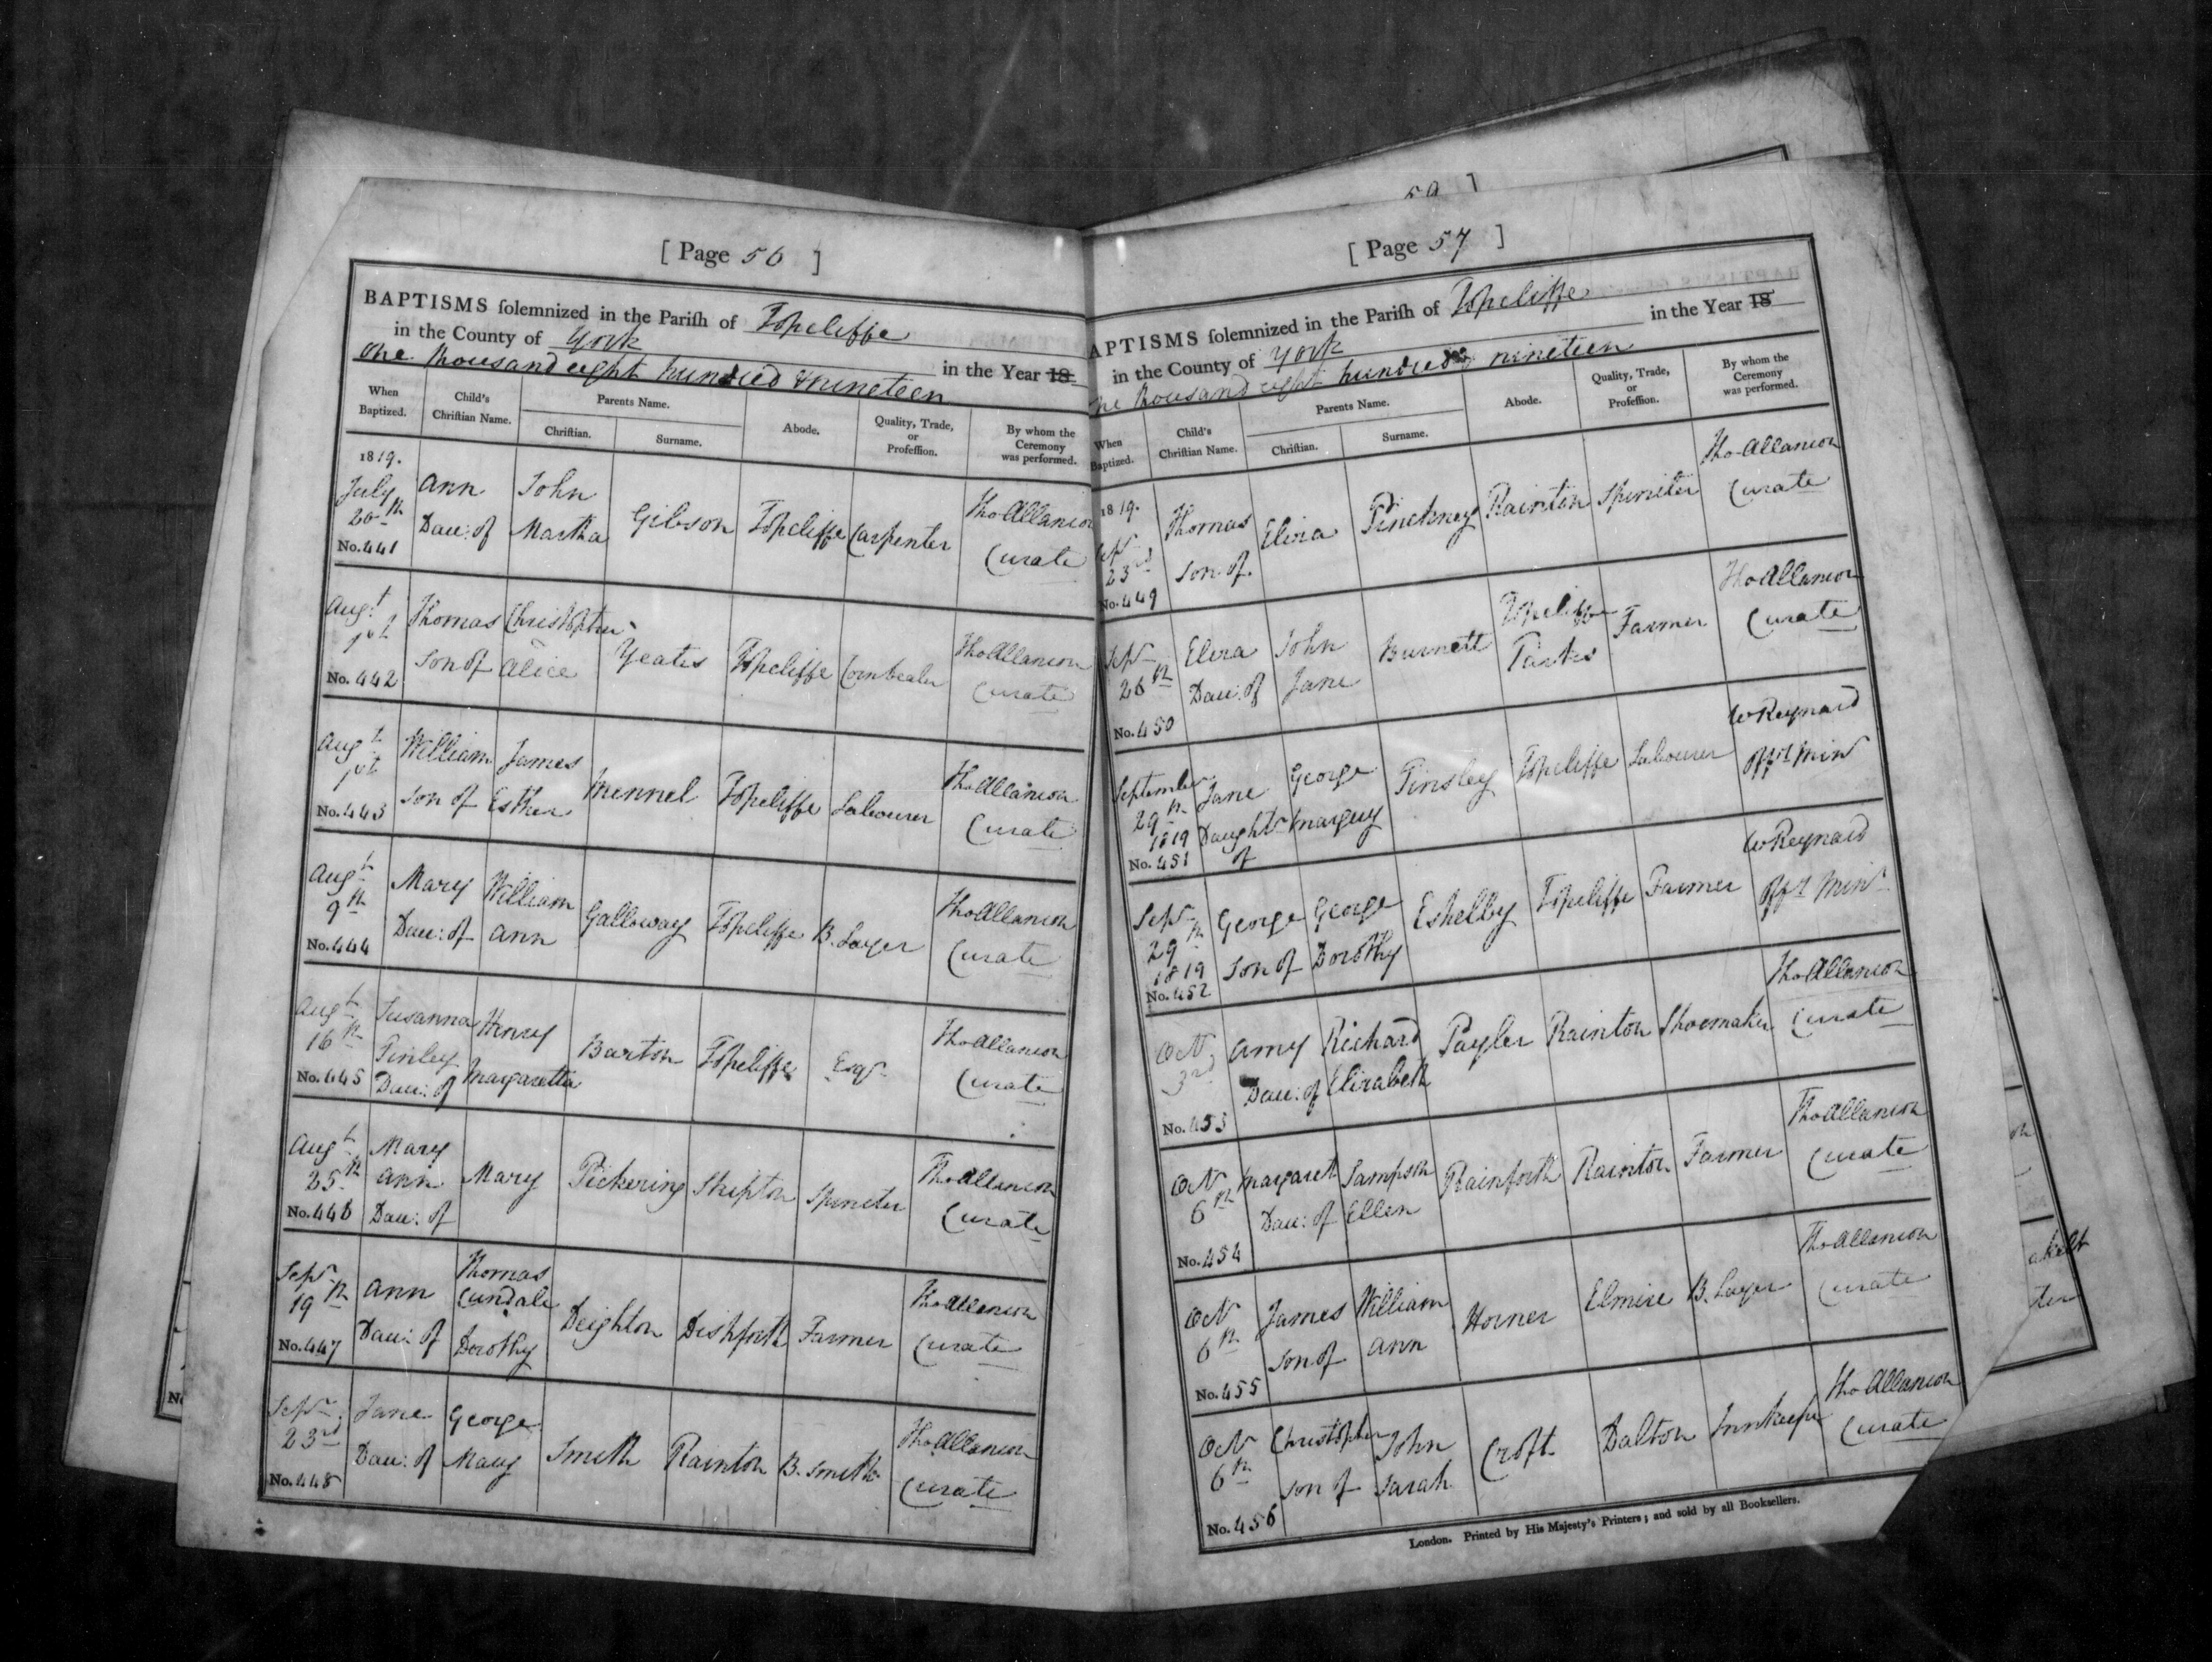 [ Page 56 ]
BAPTISMS ſolemnized in the Pariſh of Topcliffe
in the County of York in the Year 18
One thousand eight hundred & nineteen
When Baptized.
Child's Chriſtian Name.
Parents Name.
Chriſtian.
Surname.
Abode.
Quality, Trade, or Profeſſion.
By whom the Ceremony was performed.
1819.
July 20th No. 441 Ann Dau: of John Martha Gibson Topcliffe Carpenter Tho Allanson Curate
Augt 1st No. 442 Thomas Son of Christopher Alice Yeates Topcliffe Corndealer Tho Allanson Curate
Augt 1st No. 443 William Son of James Esther Mennel Topcliffe Labourer Tho Allanson Curate
Augt 9th No. 444 Mary Dau: of William Ann Galloway Topcliffe B. Layer Tho Allanson Curate
Augt 16th No. 445 Susanna Tinley Dau: of Henry Margaretta Barton Topcliffe Esqr Tho Allanson Curate
Augt 25th No. 446 Mary Ann Dau: of Mary Pickering Skipton Spinster Tho Allanson Curate
Sepr 19th No. 447 Ann Dau: of Thomas Cundale Dorothy Deighton Dishforth Farmer Tho Allanson Curate
Sepr 23rd No. 448 Jane Dau: of George Mary Smith Rainton B. Smith Tho Allanson Curate
59 ]
[ Page 57 ]
APTISMS ſolemnized in the Pariſh of Topcliffe
in the County of York in the Year 18
ne thousand eight hundred & nineteen
When Baptized.
Child's Chriſtian Name.
Parents Name.
Chriſtian.
Surname.
Abode.
Quality, Trade, or Profeſſion.
By whom the Ceremony was performed.
1819.
Sepr 23rd No. 449 Thomas Son of Eliza Pinckney Rainton Spinster Tho Allanson Curate
Sepr 26th No. 450 Eliza Dau: of John Jane Burnett Topcliffe Parks Farmer Tho Allanson Curate
September 29th 1819 No. 451 Jane Daughtr of George Margery Tinsley Topcliffe Labourer W Reynard Offg Minr
Sepr 29th 1819 No. 452 George Son of George Dorothy Eshelby Topcliffe Farmer W Reynard Offg Minr
Octr 3rd No. 453 Amy Dau: of Richard Elizabeth Payler Rainton Shoemaker Tho Allanson Curate
Octr 6th No. 454 Margaret Dau: of Sampson Ellen Rainforth Rainton Farmer Tho Allanson Curate
Octr 6th No. 455 James Son of William Ann Horner Elmire B. Layer Tho Allanson Curate
Octr 6th No. 456 Christopher Son of John Sarah Croft Dalton Innkeeper Tho Allanson Curate
London. Printed by His Majesty's Printers; and sold by all Booksellers.